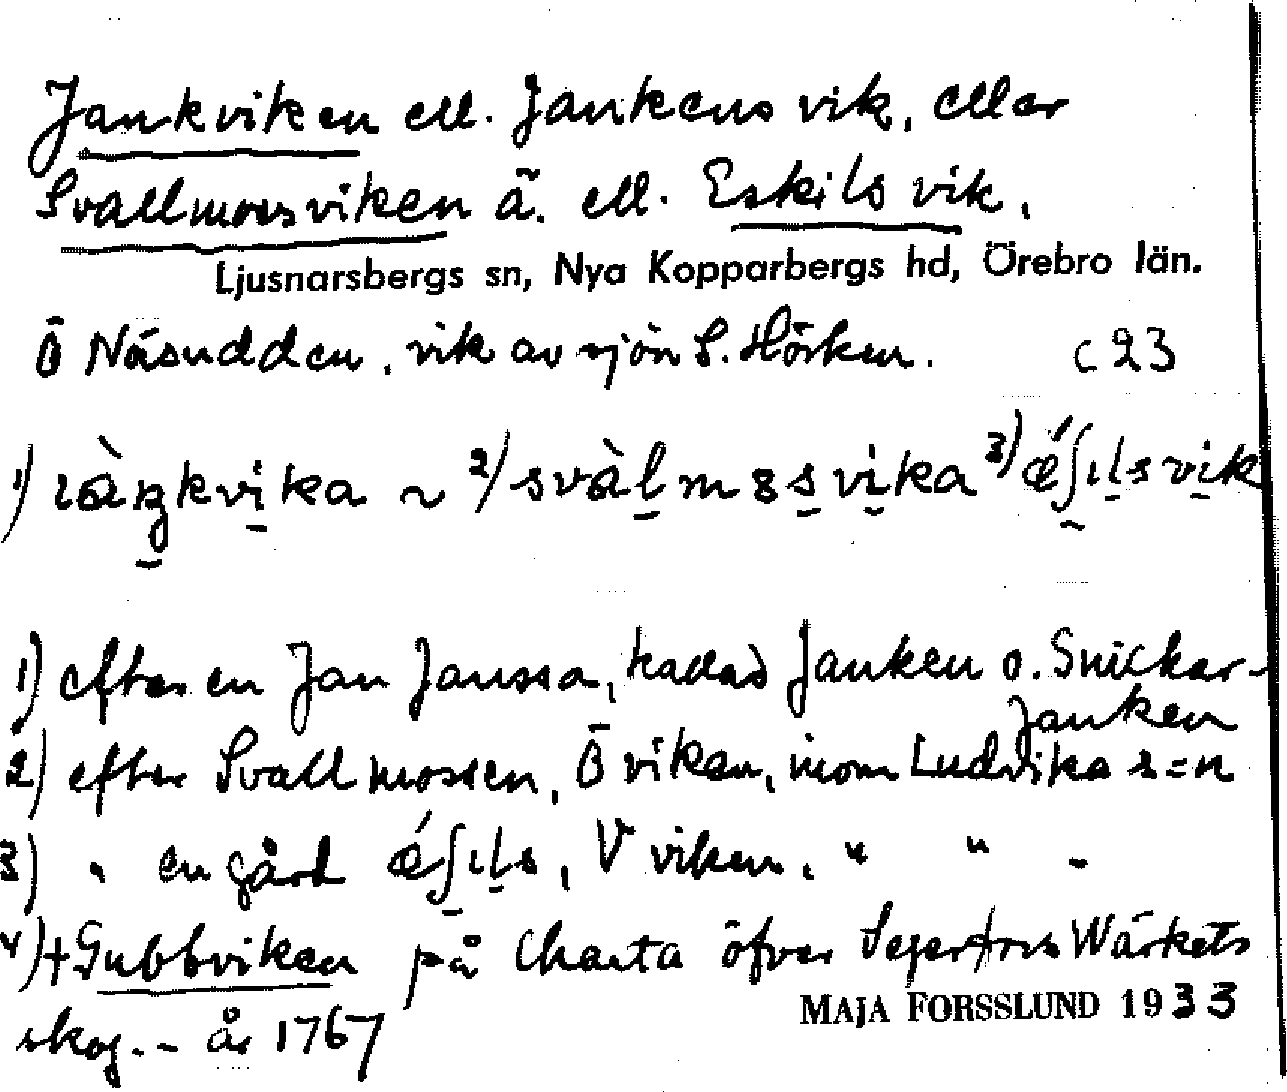 Jankviken ell. Jankens vik, eller
Svallmossviken ä. ell. Eskils vik.
Ljusnarsbergs sn, Nya Kopparbergs hd, Örebro län.
Ö Näsudden, vik av sjön S. Hörken. C 23
1) 2) 3)
1) efter en Jan Janssa, kadad Janken o. Snickar-
Janken
2) efter Svallmossen, Ö viken, inom Ludvika s=n
3) " en gård V viken, " " -
4) + Gubbviken på Charta öfver Wärkets
skog. - år 1767
MAJA FORSSLUND 1933